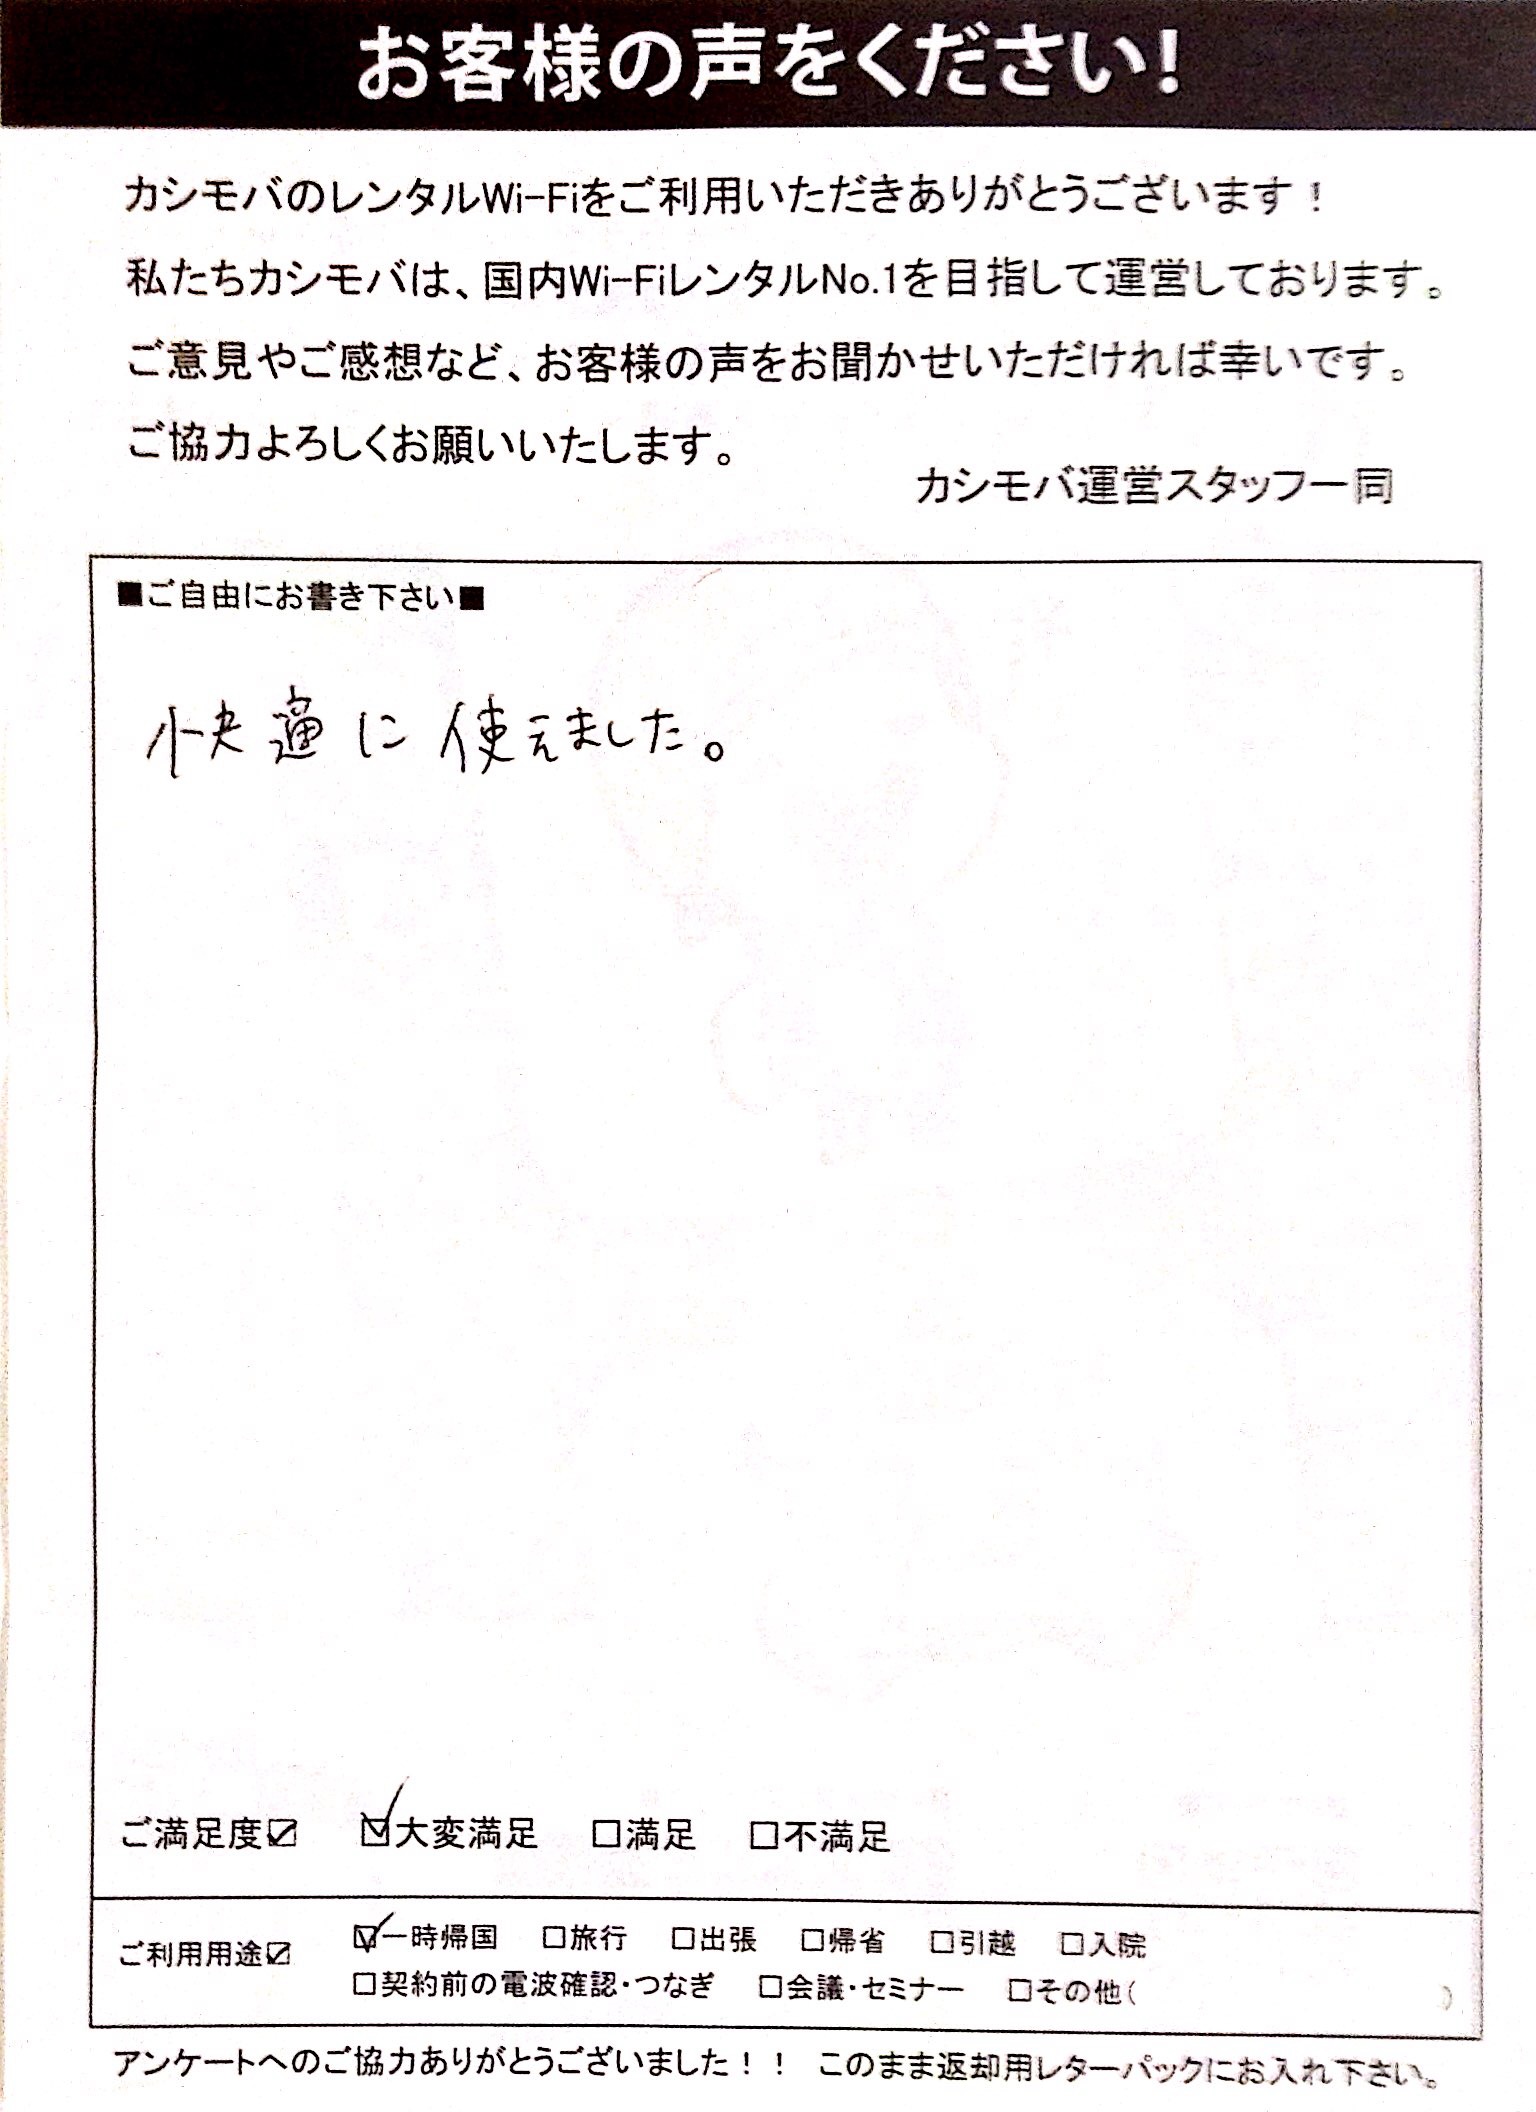 お客様の声をください！
カシモバのレンタルWi-Fiをご利用いただきありがとうございます！
私たちカシモバは、国内Wi-FiレンタルNo.1を目指して運営しております。
ご意見やご感想など、お客様の声をお聞かせいただければ幸いです。
ご協力よろしくお願いいたします。
カシモバ運営スタッフ一同
■ご自由にお書き下さい■
快適に使えました。
ご満足度☑ ☑大変満足 □満足 □不満足
ご利用用途☑ ☑一時帰国 □旅行 □出張 □帰省 □引越 □入院
□契約前の電波確認・つなぎ □会議・セミナー □その他( )
アンケートへのご協力ありがとうございました！！ このまま返却用レターパックにお入れ下さい。